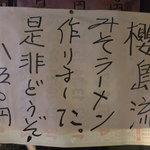 櫻島流
みそラーメン
作りました。
是非どうぞ
八五〇円